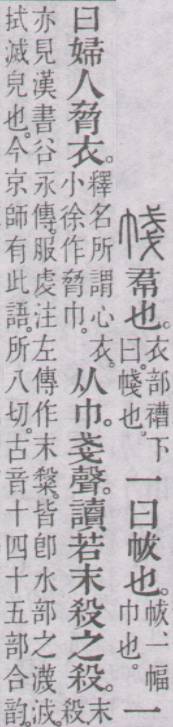 帴帬也。衣部褿下曰。帴也。一曰帗也。帗、一幅巾也。一
曰婦人脅衣。釋名所謂心衣。小徐作脅巾。从巾。戔聲。讀若末殺之殺。末殺
亦見漢書谷永傳。服虔注左傳作末𥻦。皆卽水部之瀎泧。
拭滅皃也。今京師有此語。所八切。古音十四十五部合韵。